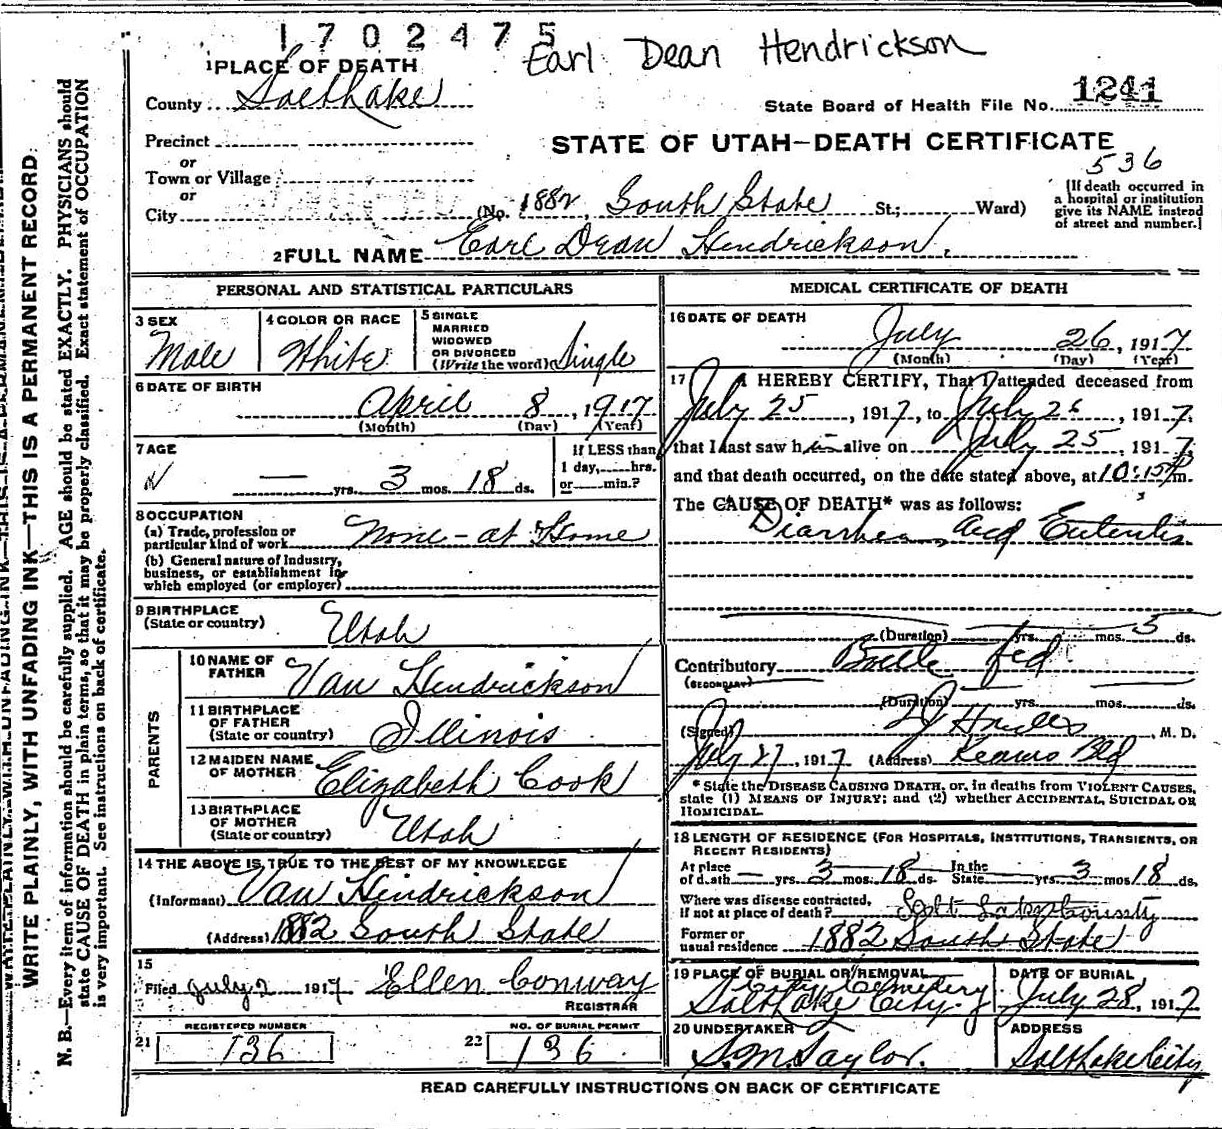 1702475
Earl Dean Hendrickson
1 PLACE OF DEATH
County Salt Lake
State Board of Health File No. 1241
Precinct
STATE OF UTAH—DEATH CERTIFICATE
or
536
Town or Village
or
City (No. 1882, South State St.; Ward)
[If death occurred in
a hospital or institution
give its NAME instead
of street and number.]
2 FULL NAME Earl Dean Hendrickson.
PERSONAL AND STATISTICAL PARTICULARS
3 SEX
Male
4 COLOR OR RACE
White
5 SINGLE
MARRIED
WIDOWED
OR DIVORCED
(Write the word) Single
6 DATE OF BIRTH
April 8, 1917
(Month) (Day) (Year)
7 AGE
— yrs. 3 mos. 18 ds.
If LESS than
1 day, hrs.
or min.?
8 OCCUPATION
(a) Trade, profession or
particular kind of work None - at Home
(b) General nature of Industry,
business, or establishment in
which employed (or employer)
9 BIRTHPLACE
(State or country) Utah
PARENTS
10 NAME OF
FATHER Van Hendrickson
11 BIRTHPLACE
OF FATHER
(State or country) Illinois
12 MAIDEN NAME
OF MOTHER Elizabeth Cook
13 BIRTHPLACE
OF MOTHER
(State or country) Utah
14 THE ABOVE IS TRUE TO THE BEST OF MY KNOWLEDGE
(Informant) Van Hendrickson
(Address) 1882 South State
15
Filed July 2 1917 Ellen Conway
REGISTRAR
REGISTERED NUMBER
21 136
NO. OF BURIAL PERMIT
22 136
MEDICAL CERTIFICATE OF DEATH
16 DATE OF DEATH
July 26, 1917
(Month) (Day) (Year)
17 I HEREBY CERTIFY, That I attended deceased from
July 25, 1917, to July 26, 1917,
that I last saw him alive on July 25, 1917,
and that death occurred, on the date stated above, at 10:15 P m.
The CAUSE OF DEATH* was as follows:
Diarrhea and Enteritis
(Duration) yrs. mos. 5 ds.
Contributory Bottle fed
(SECONDARY)
(Duration) yrs. mos. ds.
(Signed) M. D.
July 27, 1917 (Address) Kearns Bld
* State the DISEASE CAUSING DEATH, or, in deaths from VIOLENT CAUSES,
state (1) MEANS OF INJURY; and (2) whether ACCIDENTAL, SUICIDAL OR
HOMICIDAL.
18 LENGTH OF RESIDENCE (FOR HOSPITALS, INSTITUTIONS, TRANSIENTS, OR
RECENT RESIDENTS)
At place
of death — yrs. 3 mos. 18 ds. In the
State — yrs. 3 mos 18 ds.
Where was disease contracted,
if not at place of death? Salt Lake County
Former or
usual residence 1882 South State
19 PLACE OF BURIAL OR REMOVAL
City Cemetery
Salt Lake City
DATE OF BURIAL
July 28, 1917
20 UNDERTAKER
S. M. Taylor.
ADDRESS
Salt Lake City
READ CAREFULLY INSTRUCTIONS ON BACK OF CERTIFICATE
WRITE PLAINLY, WITH UNFADING INK—THIS IS A PERMANENT RECORD.
N. B.—Every item of information should be carefully supplied. AGE should be stated EXACTLY. PHYSICIANS should
state CAUSE OF DEATH in plain terms, so that it may be properly classified. Exact statement of OCCUPATION
is very important. See instructions on back of certificate.